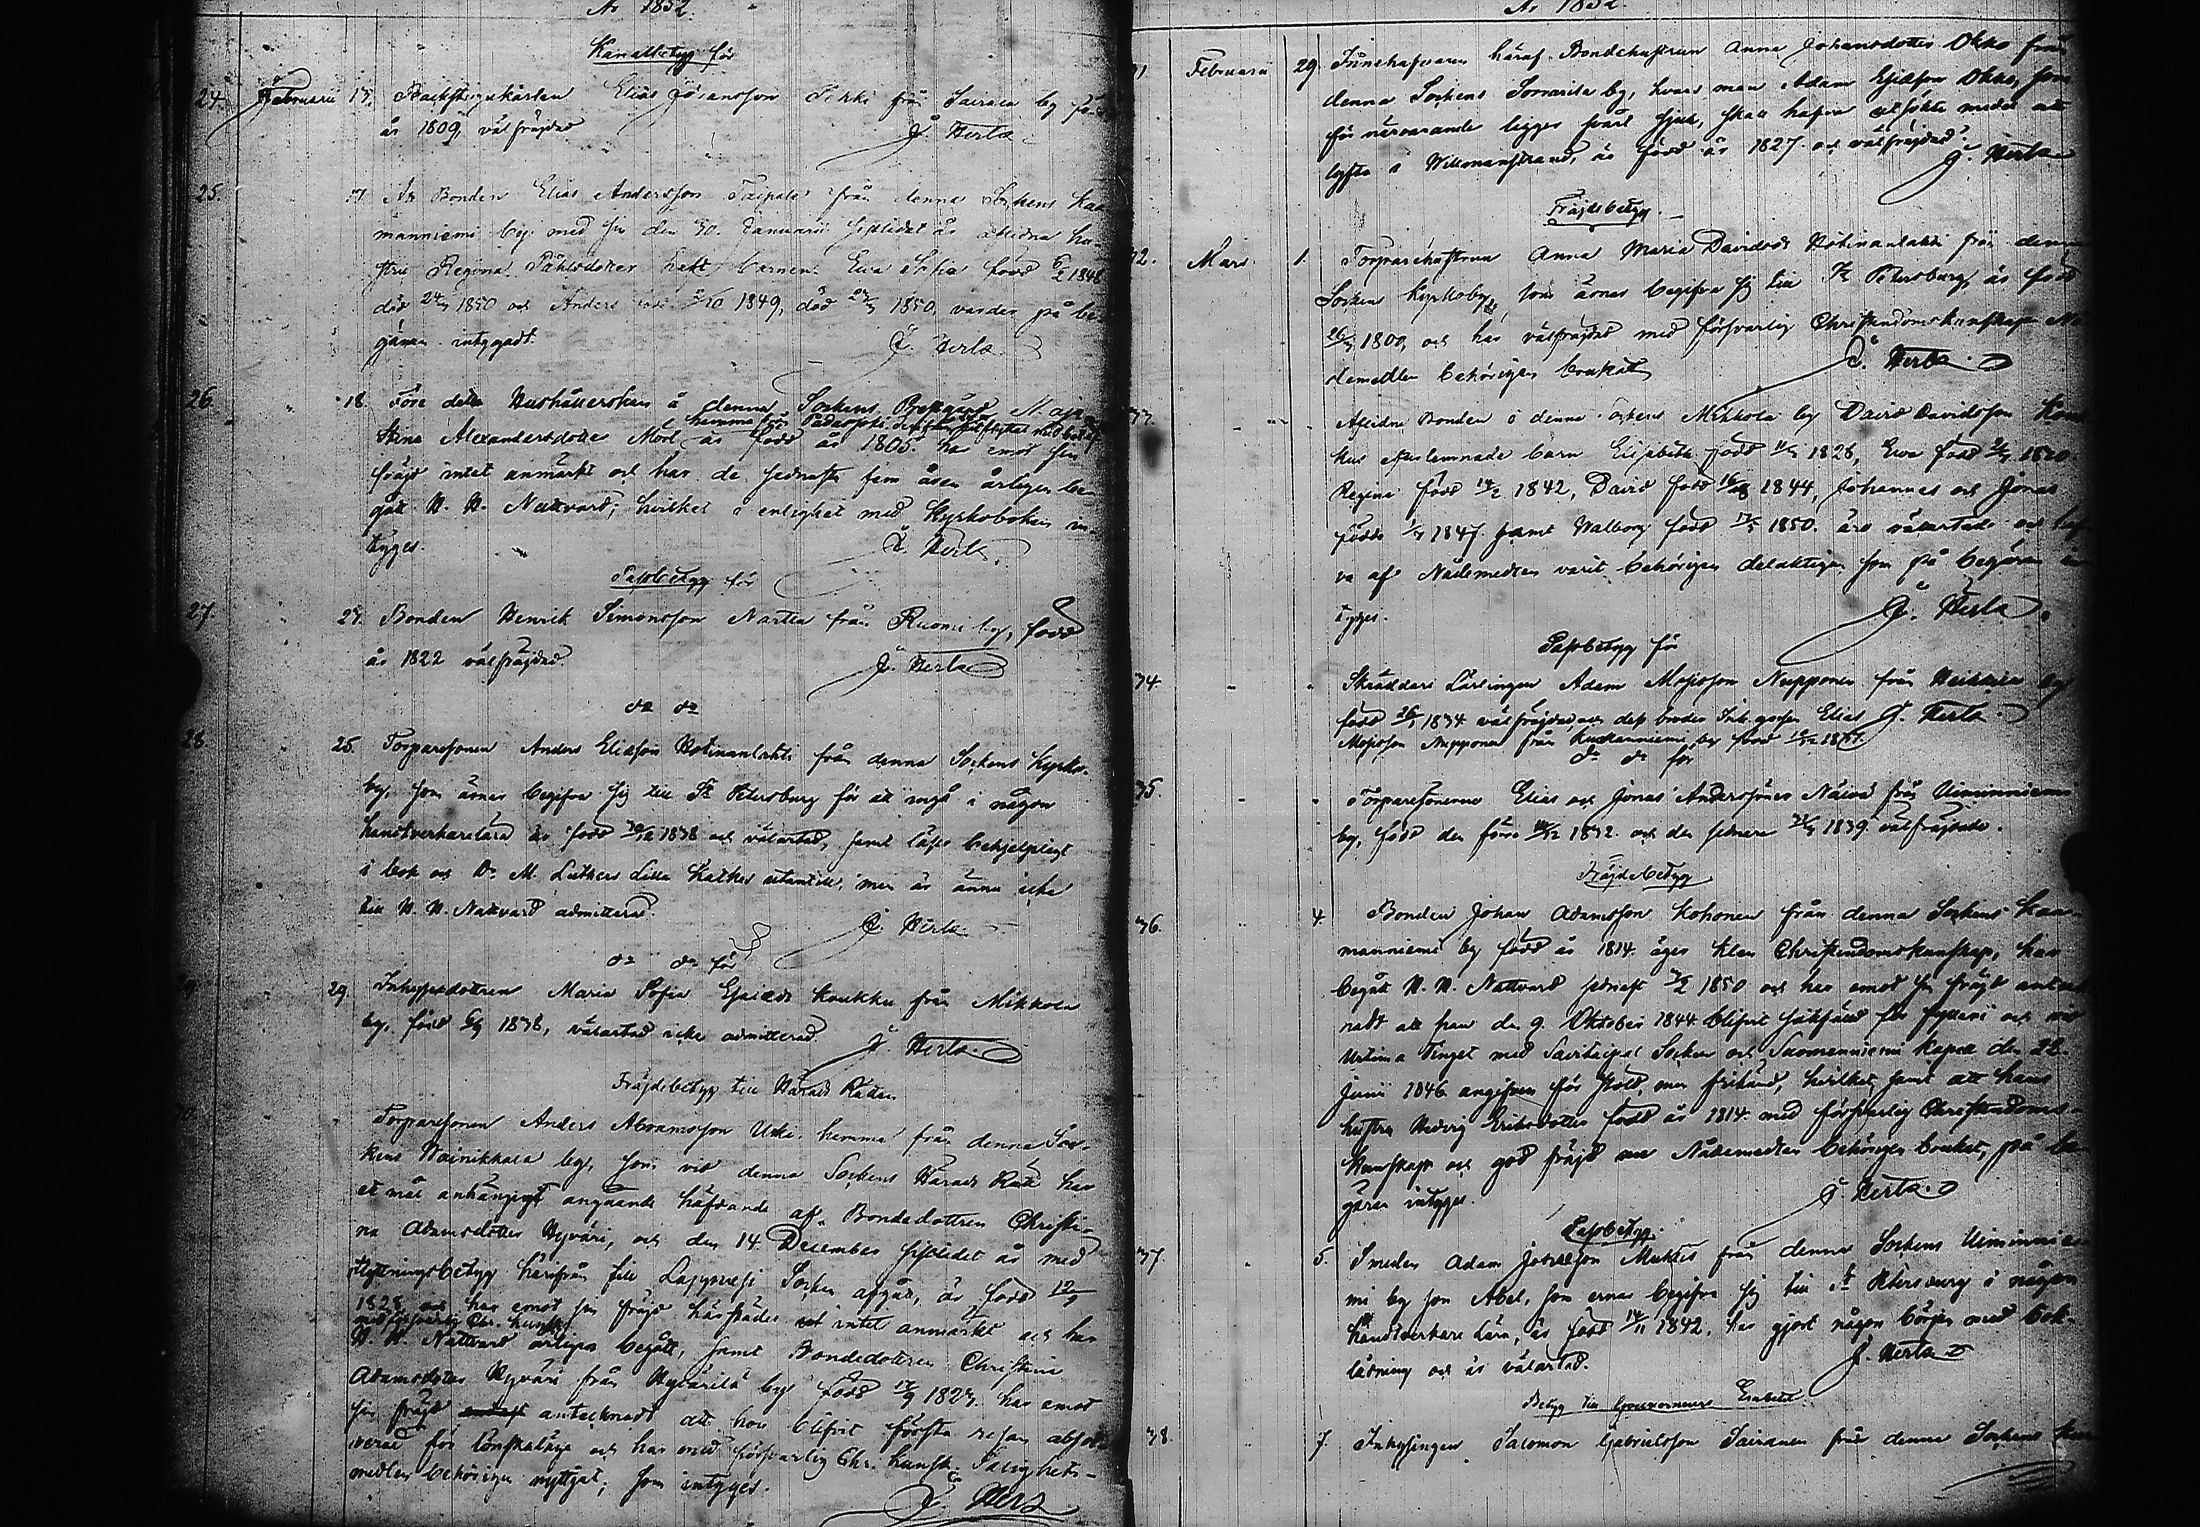 År 1852.
Kanalbetyg för
24. Februarii 15. Backstugukarlen Elias Johansson Sikki från Sairala by född
år 1809, välfräjdad J. Herla
25. 17. At Bonden Elias Andersson Taipale från denna Sockens Kau-
manniemi by med sin den 30. Januarii sistlidet år aflidna hu-
stru Regina Påhlsdotter haft barnen Ewa Sofia född 6/2 1848
död 24/4 1850 och Anders född 1849, död 1850, varder på be-
gäran intygadt. J. Herla
26. 18. Före detta Hushållerskan å denna Sockens Prestgård Maja
hemma från Padasjoki
Stina Alexandersdotter Mört är född år 1805. har emot sin
fräjd intet anmärkt och har de sednaste fem åren årligen be-
gått H. H. Nattvard; hvilket i enlighet med Kyrkoboken in-
tyges. J. Herla
Passbetyg för
27. 24. Bonden Henrik Simonsson Nartia från Ruomi by, född
år 1822 välfräjdad. J. Herla
do do
28. 25. Torparesonen Anders Eliasson Hotinanlahti från denna Sockens Kyrko-
by, som ärnar begifva sig till St Petersburg för att ingå i någon
handtverkarelära är född 1838 och välartad, samt läser behjelpligt
i bok och Dr M. Luthers Lilla Katkes utantill, men är ännu icke
till H. H. Nattvard admitterad. J. Herla
do do för
29. 29. Inhysesdottren Maria Sofia Esaiædr Koukku från Mikkola
by, född 1838, välartad icke admitterad. J. Herla
Fräjdebetyg till Härads Rätten
30. Torparesonen Anders Abramsson Uski hemma från denna Soc-
kens Wainikkala by, som vid denna Sockens Härads Rätt har
et mål anhängigt angående häfdande af Bondedottren Christi-
na Adamsdotter Hyväri, och den 14. December sistlidet år med
flyttningsbetyg härifrån till Lappvesi Socken afgått, är född
1828 och har emot sin fräjd härstädes intet anmärkt och har
med försvarlig Chr. kunsk.
H. H. Nattvard årligen begått, samt Bondedottren Christina
Adamsdotter Hyväri från Hyvärilä by född 1827. har emot
sin fräjd antecknadt att hon blifvit första resan absol-
verad för lönskaläge och har med försvarlig Chr. kunsk. Salighets-
medlen behörigen nyttjat; som intyges. J. Herla
År 1852.
31. Februarii 29. Innehafvaren häraf Bondehustrun Anna Johansdotter Okko från
denna Sockens Sorvarila by, hvars man Adam Esaiasson Okko, som
för närvarande ligger svårt sjuk, skall hafva utsökte medel att
lyfta i Willmanstrand, är född år 1827 och välfräjdad. J. Herla
Fräjdebetyg.
32. Mars 1. Torparehustrun Anna Maria Davidsdr Hotinanlahti från denna
Sockens Kyrkoby, som ärnar begifva sig till St Petersburg, är född
1800, och har välfräjdad med försvarlig Christendomskunskap Nå-
demedlen behörigen brukat J. Herla
33. Aflidne Bonden i denna Sockens Mikkola by David Davidsson
efterlemnade barn Elisabeth född 1828, Ewa född 1830
Regina född 14/2 1842, David född 1844, Johannes och Jonas
födde 1847 samt Walborg född 1850. äro välartade och haf-
va af Nådemedlen varit behörigen delaktige som på begäran in-
tyges. J. Herla
Passbetyg för
34. Skräddare Lärlingen Adam Mosisson Nupponen från Heikkilä by
född 1834 välfräjdad, och dess broder Elias J. Herla
Mosisson Nupponen från by född
do do för
35. Torparesönerne Elias och Jonas Anderssöner Näivä från Uiminniemi
by, född den förra 1832. och den sednare 1839. välfräjdade.
Fräjdebetyg
36. 4. Bonden Johan Adamsson Kohonen från denna Sockens Kau-
manniemi by född år 1814. äger klen Christendomskunskap, har
begått H. H. Nattvard sednast 1850 och har emot sin fräjd anteck-
nadt att han den 9. Oktober 1844 blifvit sakfälld för fylleri och vid
Urtima Tinget med Savitaipal Socken och Suomenniemi Kapell den 22.
Junii 1846 angifven för stöld, men frikänd, hvilket, samt att hans
hustru Hedvig Eriksdotter född år 1814 med försvarlig Christendoms-
kunskap och god fräjd Nådemedlen behörigen brukat, på be-
gäran intyges. J. Herla
Passbetyg.
37. 5. Smeden Adam Josefsson Mutkis från denna Sockens Uiminnie-
mi by son Abel, som ernar begifva sig till St Petersburg i någon
handtverkare lära, är född 14/11 1842. har gjort någon början med bok-
läsning och är välartad. J. Herla
Betyg till Gouverneurs Embetet.
38. 7. Inhysingen Salomon Gabrielsson Sairanen från denna Sockens